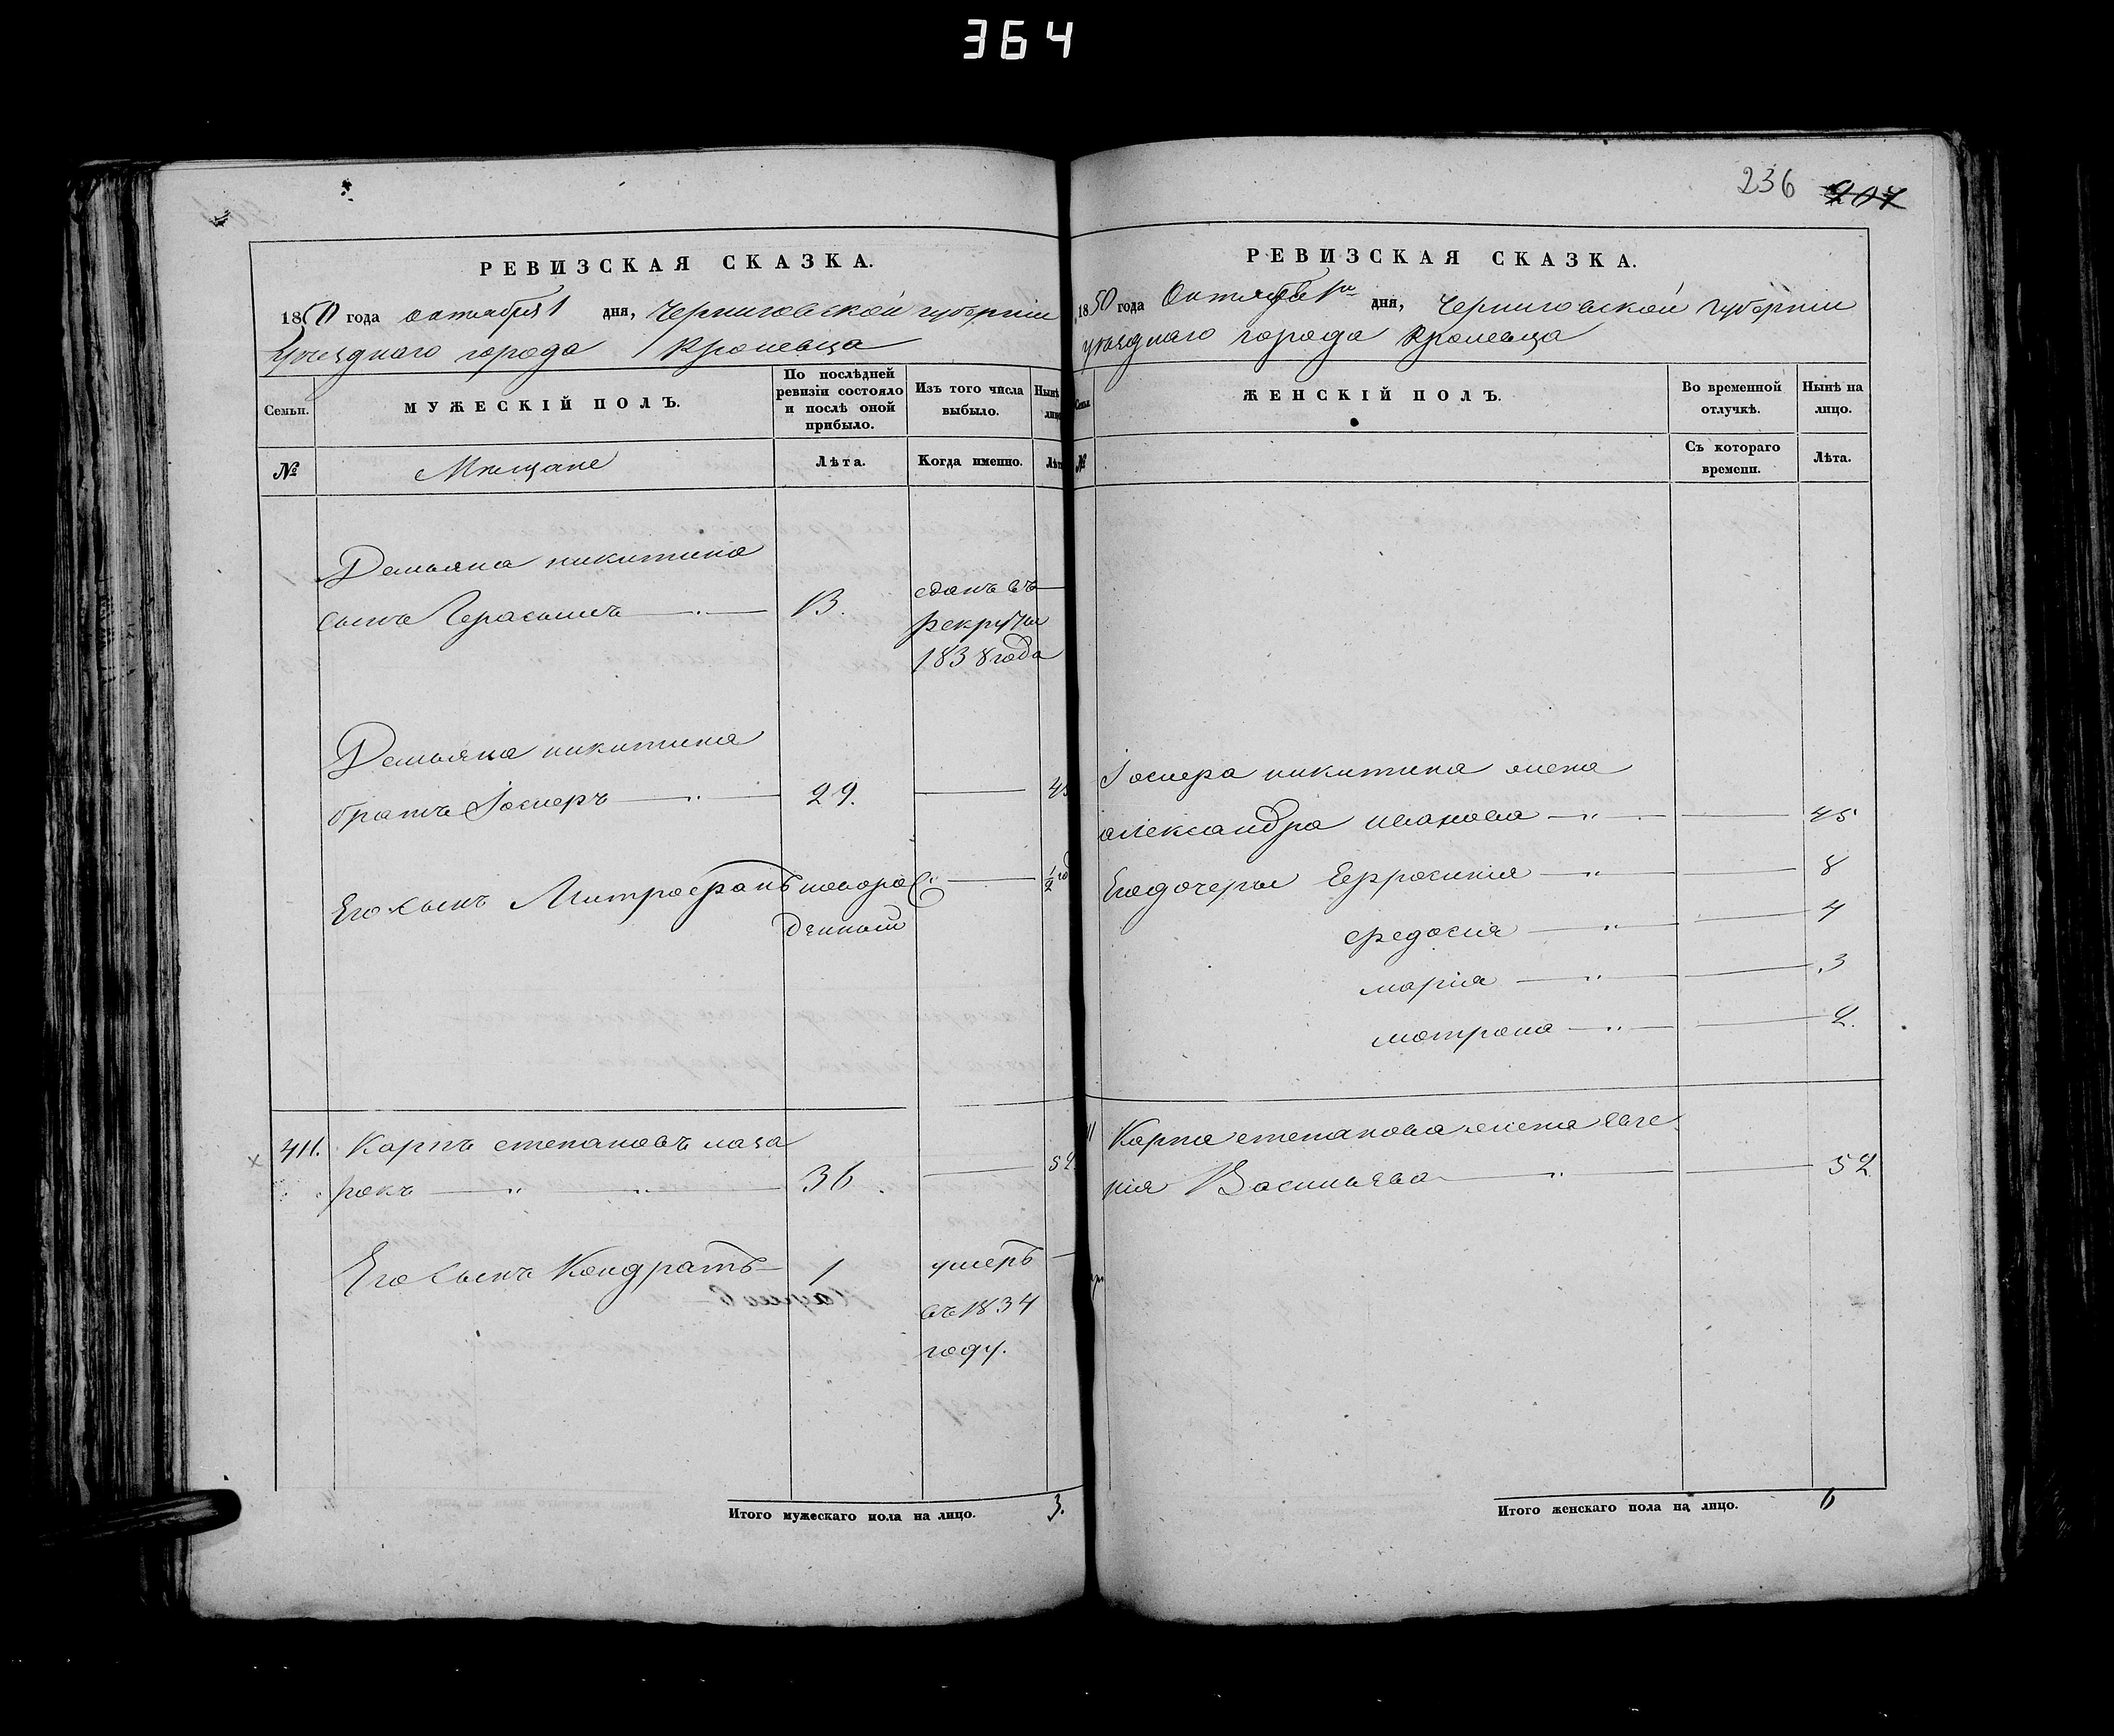 364
236 207
РЕВИЗСКАЯ СКАЗКА.
1850 года октября 1 дня, Черниговской губернiи
уѣзднаго города Кролевца
Семьи.
МУЖЕСКIЙ ПОЛЪ.
По послѣдней ревизiи состояло и послѣ оной прибыло.
Изъ того числа выбыло.
Нынѣ
лицо
№
Мѣщане
Лѣта.
Когда именно.
Лѣт
Демьяна никитина
сынъ Герасимъ 13.
сданъ въ
рекруты
1838 года
Демьяна никитина
братъ Iосифъ 29. 45
Его сынъ Митрофанъ новорож
денный
1/2 год
411. Карпъ степановъ лаза
рокъ 36. 52
Его сынъ Кондратъ 1
умеръ
въ 1834
году.
Итого мужескаго пола на лицо. 3.
РЕВИЗСКАЯ СКАЗКА.
1850 года Октября 1го дня, Черниговской губернiи
уѣзднаго города Кролевца
Семьи
ЖЕНСКIЙ ПОЛЪ.
Во временной отлучкѣ.
Нынѣ на лицо.
№
Съ котораго времени.
Лѣта.
Iосифа никитина жена
александра иванова 45
Его дочеры Ефросинiя 8
федосiя 4
марiя 3
матрона 2.
11 Карпа степанова жена
Васильева 52
Итого женскаго пола на лицо. 6